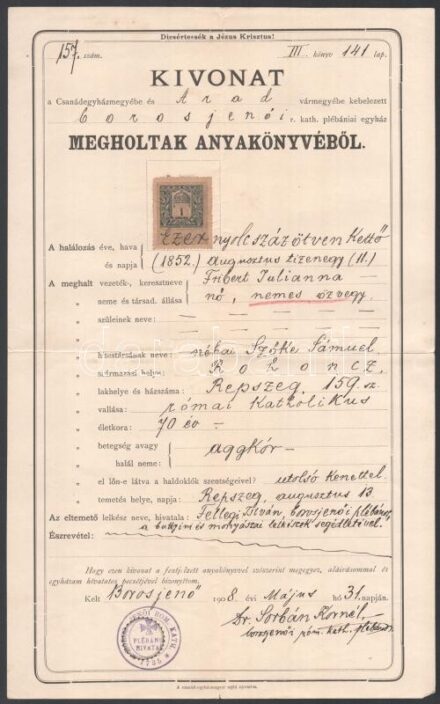 Dicsértessék a Jézus Krisztus!
157. szám.
III. könyv 141 lap.
KIVONAT
a Csanádegyházmegyébe és Arad vármegyébe kebelezett
borosjenői r. kath. plébániai egyház
MEGHOLTAK ANYAKÖNYVÉBŐL.
A halálozás éve, hava Ezernyolcszázötvenkettő
és napja (1852) augusztus tizenegy (11.)
A meghalt vezeték-, keresztneve Fribert Julianna
neme és társad. állása nő, nemes özvegy.
" szüleinek neve:
" hitestársának neve: nókai Szőke Sámuel
" származási helye: Kokoncz,
" lakhelye és házszáma: Repszeg 159 sz.
" vallása: római katholikus
" életkora: 70 év
" betegség avagy
halál neme: aggkór
" el lőn-e látva a haldoklók szentségeivel? utolsó kenettel.
" temetés helye, napja: Repszeg, augusztus 13.
Az eltemető lelkész neve, hivatala: István, borosjenői plébános,
a buttyini és monyászai lelkészek segédletével.
Észrevétel:
Hogy ezen kivonat a fentjelzett anyakönyvvel szószerint megegyez, aláirásommal és
egyházam hivatalos pecsétjével bizonyitom.
Kelt Borosjenő 1908 évi Május hó 31. napján.
Dr. Sorbán Kornél
borosjenői róm. kath. plébános
RÓM. KATH.
PLÉBÁNIA
HIVATAL
1785
A csanád-egyházmegyei sajtó nyomása.